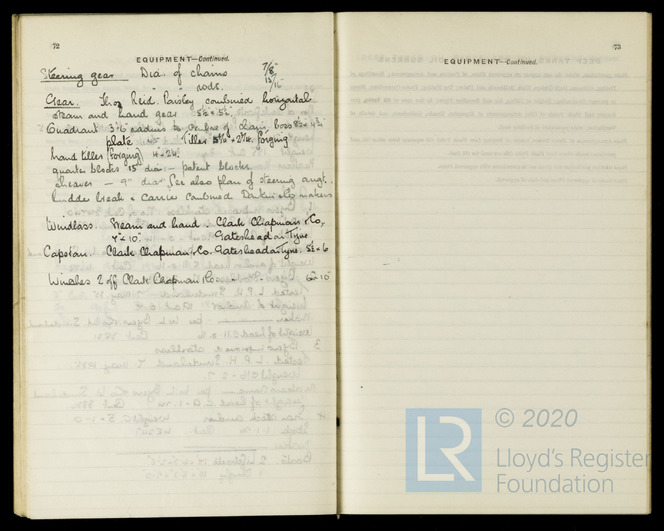 72
EQUIPMENT—Continued.
Steering gear Dia. of chains 7/8"
" " rods. 15/16"
Gear. Thos Reid Paisley combined horizontal
steam and hand gear
Quadrant 3'6 radius to centre of chain, boss
plate Tiller forging
hand tiller (forging) 4 × 2¼
quarter blocks 15" dia - patent blocks
Sheaves - 9" dia See also plan of steering angt.
Rudder break & carrier combined makers
Windlass. Steam and hand. Clark Chapman & Co,
7" × 10" Gateshead on Tyne
Capstan. Clark Chapman & Co. Gateshead on Tyne. 5½ × 6
Winches 2 off Clark Chapman & Co. - - 6 × 10"
73
EQUIPMENT—Continued.
© 2020
LR
Lloyd's Register
Foundation